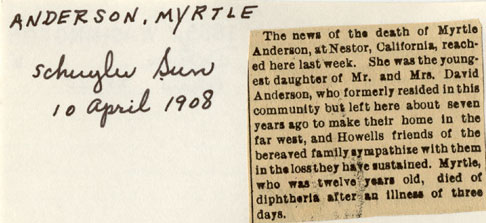 ANDERSON, MYRTLE
Schuyler Sun
10 April 1908
The news of the death of Myrtle
Anderson, at Nestor, California, reach-
ed here last week. She was the young-
est daughter of Mr. and Mrs. David
Anderson, who formerly resided in this
community but left here about seven
years ago to make their home in the
far west, and Howells friends of the
bereaved family sympathize with them
in the loss they have sustained. Myrtle,
who was twelve years old, died of
diphtheria after an illness of three
days.